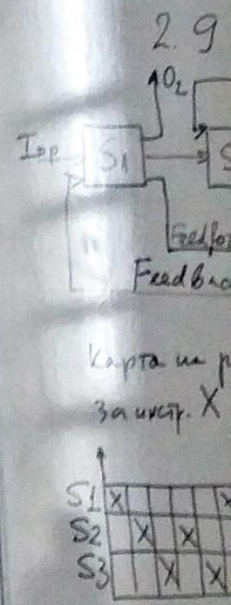 2.9
O2
S1
S
Feedfo
Feedbac
Карта на р
За инстр. X
S1 X X
S2 X X
S3 X X